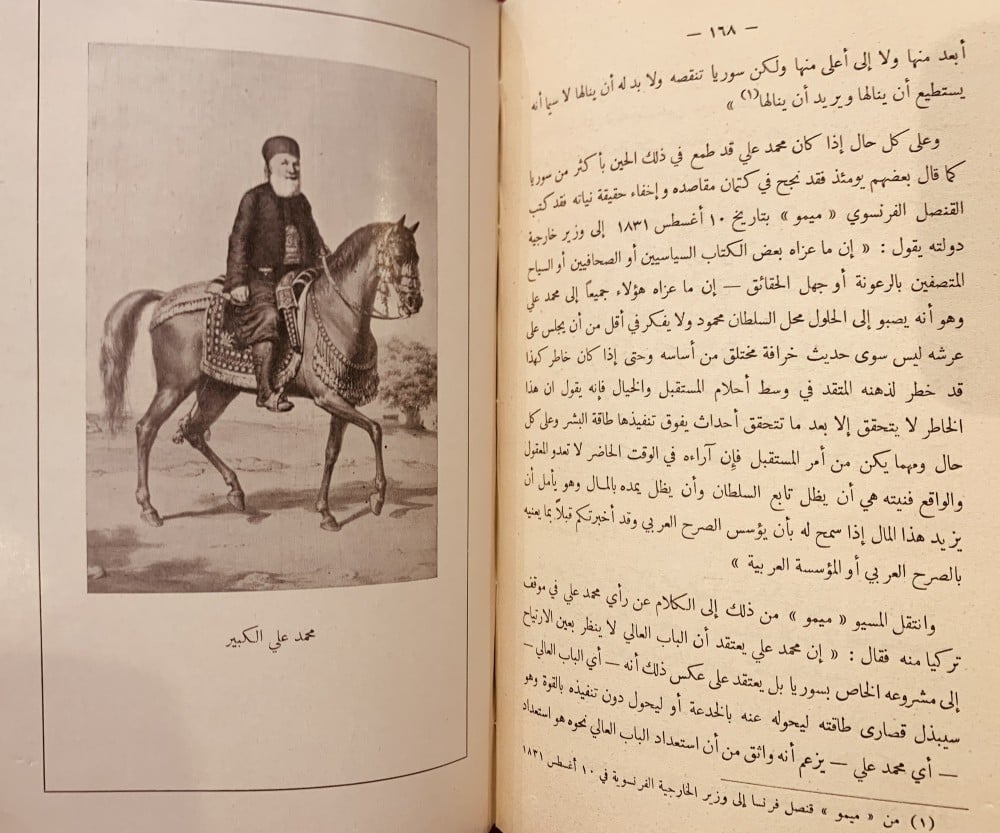 — ١٦٨ —
أبعد منها ولا إلى أعلى منها ولكن سوريا تنقصه ولا بد له أن ينالها لا سيما أنه
يستطيع أن ينالها ويريد أن ينالها(١) »
وعلى كل حال إذا كان محمد علي قد طمع في ذلك الحين بأكثر من سوريا
كما قال بعضهم يومئذ فقد نجح في كتمان مقاصده وإخفاء حقيقة نياته فقد كتب
القنصل الفرنسوي « ميمو » بتاريخ ١٠ أغسطس ١٨٣١ إلى وزير خارجية
دولته يقول : « إن ما عزاه بعض الكتاب السياسيين أو الصحافيين أو السياح
المتصفين بالرعونة أو جهل الحقائق — إن ما عزاه هؤلاء جميعاً إلى محمد علي
وهو أنه يصبو إلى الحلول محل السلطان محمود ولا يفكر في أقل من أن يجلس على
عرشه ليس سوى حديث خرافة مختلق من أساسه وحتى إذا كان خاطر كهذا
قد خطر لذهنه المتقد في وسط أحلام المستقبل والخيال فإنه يقول ان هذا
الخاطر لا يتحقق إلا بعد ما تتحقق أحداث يفوق تنفيذها طاقة البشر وعلى كل
حال ومهما يكن من أمر المستقبل فإن آراءه في الوقت الحاضر لا تعدو المعقول
والواقع فنيته هي أن يظل تابع السلطان وأن يظل يمده بالمال وهو يأمل أن
يزيد هذا المال إذا سمح له بأن يؤسس الصرح العربي وقد أخبرتكم قبلاً بما يعنيه
بالصرح العربي أو المؤسسة العربية »
وانتقل المسيو « ميمو » من ذلك إلى الكلام عن رأي محمد علي في موقف
تركيا منه فقال : « إن محمد علي يعتقد أن الباب العالي لا ينظر بعين الارتياح
إلى مشروعه الخاص بسوريا بل يعتقد على عكس ذلك أنه — أي الباب العالي —
سيبذل قصارى طاقته ليحوله عنه بالخدعة أو ليحول دون تنفيذه بالقوة وهو
— أي محمد علي — يزعم أنه واثق من أن استعداد الباب العالي نحوه هو استعداد
(١) من « ميمو » قنصل فرنسا إلى وزير الخارجية الفرنسوية في ١٠ أغسطس ١٨٣١
محمد علي الكبير